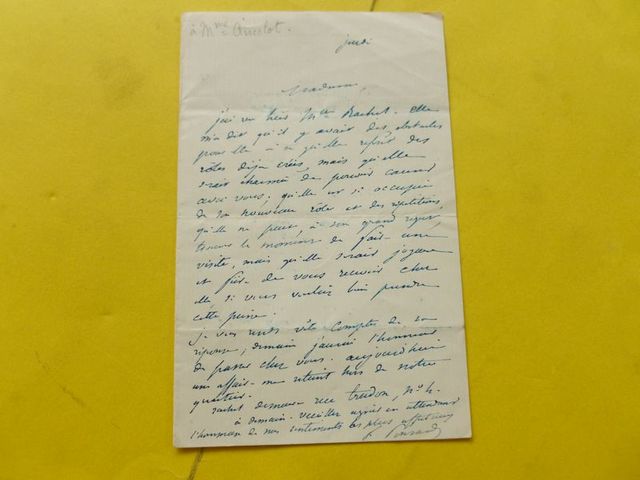 à Mme Ancelot.
jeudi
Madame,
j'ai vu hier Mlle Rachel. Elle
m'a dit qu'il y avait des obstacles
pour elle à ce qu'elle refît des
rôles déja créés, mais qu'elle
serait charmée de pouvoir causer
avec vous; qu'elle est si occupée
de son nouveau rôle et des répétitions,
qu'elle ne peut, à son grand regret,
trouver le moment de faire une
visite, mais qu'elle serait joyeuse
et fière de vous recevoir chez
elle si vous vouliez bien prendre
cette peine.
je vous rends vite compte de sa
réponse; demain j'aurai l'honneur
de passer chez vous. aujourd'hui
une affaire me retient hors de notre
quartier.
rachel demeure rue trudon, no 4.
à demain. veuillez agréer en attendant
l'hommage de mes sentiments les plus affectueux
f. Ponsard